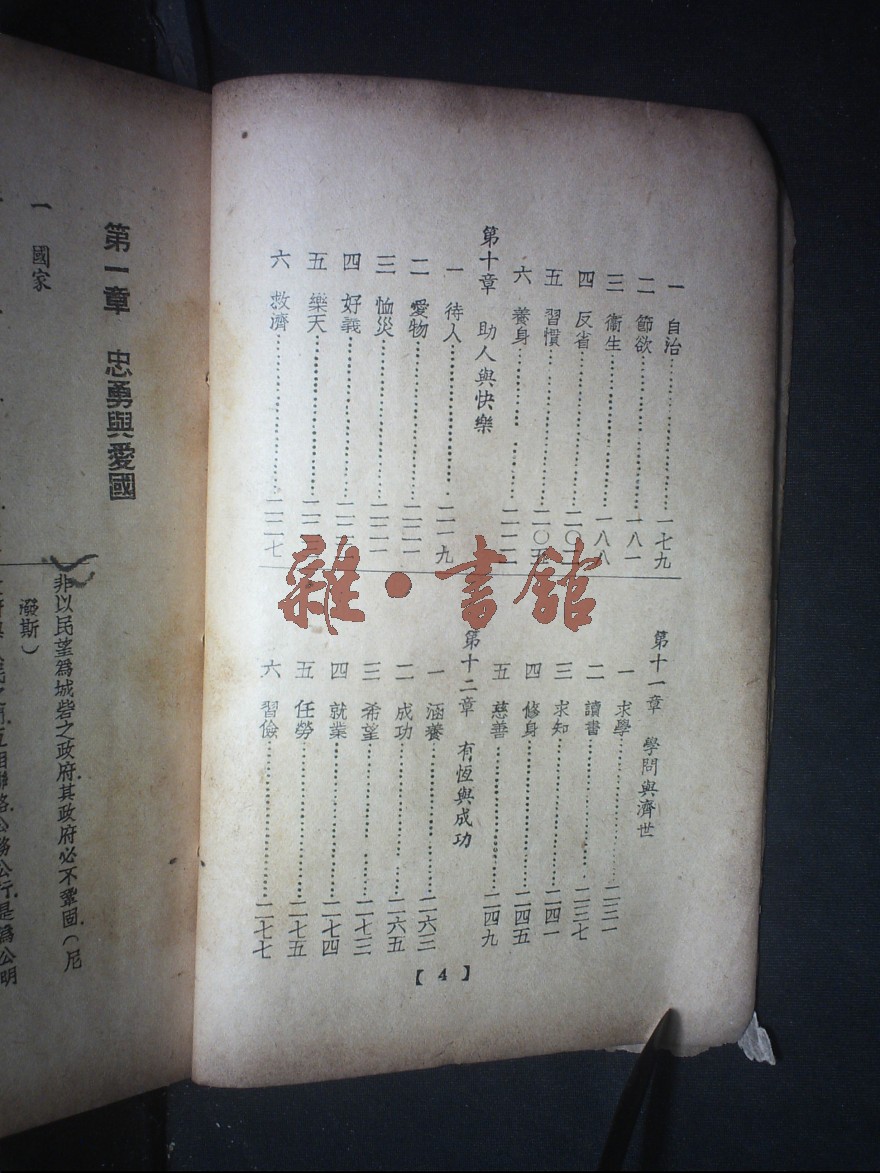 一 自治 一七九
二 節欲 一八一
三 衞生 一八八
四 反省
五 習慣 二〇五
六 養身 二一二
第十章 助人與快樂
一 待人 二一九
二 愛物 二二一
三 恤災 二二一
四 好義
五 樂天
六 救濟 二二七
第十一章 學問與濟世
一 求學 二三一
二 讀書 二三七
三 求知 二四一
四 修身 二四五
五 慈善 二四九
第十二章 有恆與成功
一 涵養 二六三
二 成功 二六五
三 希望 二七三
四 就業 二七四
五 任勞 二七五
六 習儉 二七七
【4】
雜·書館
第一章 忠勇與愛國
一 國家
非以民望爲城砦之政府.其政府必不鞏固.(尼
潑斯)
互相聯絡.公務公行.是爲公明